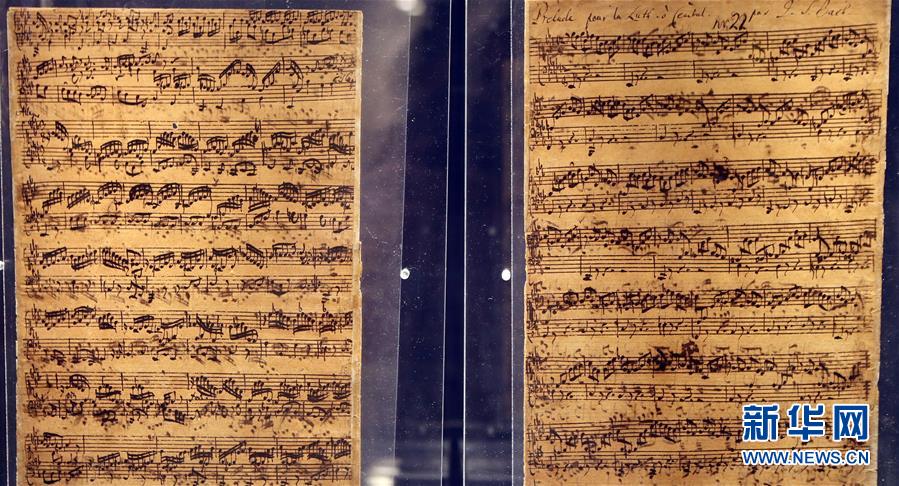 Prelude pour la Luth. ò Cembal. par J. S. Bach
Allegro
新华网
WWW.NEWS.CN